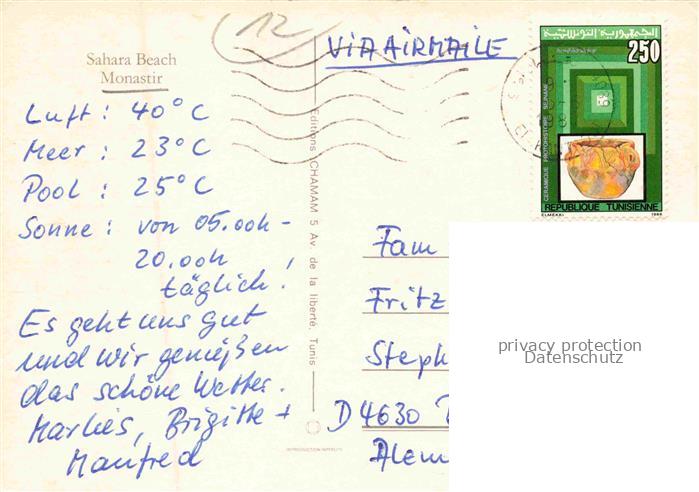 12
Sahara Beach
Monastir
Luft: 40°C
Meer: 23°C
Pool: 25°C
Sonne: von 05.00h -
20.00h,
täglich!
Es geht uns gut
und wir genießen
das schöne Wetter.
Marlies, Brigitte +
Manfred
Editions CHAMAM 5 Av. de la liberté, Tunis
REPRODUCTION INTERDITE
VIA AIRMAILE
الجمهورية التونسية
250
CERAMIQUE PROTOHISTOIRE SEJNANE
REPUBLIQUE TUNISIENNE
ELMEKKI
1986
Fam
Fritz
Steph
D 4630
Alem
privacy protection
Datenschutz